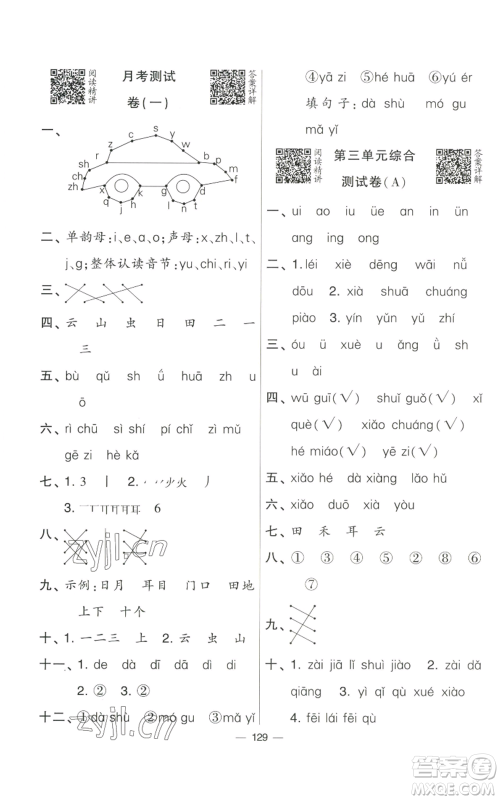 阅读精讲
月考测试
卷(一)
答案详解
一、
z s y
c w
r b
sh p
ch m
zh f
二、单韵母:i、e、a、o、u;声母:x、zh、l、t、
j、g;整体认读音节:yu、chi、ri、yi
三、
四、云 山 虫 日 田 二 一
三
五、bù qǔ sh ǘ huā zh ú
六、rì chū sì shí pí chǐ zì mǔ
gē zi hè kǎ
七、1. 3 丨 2. 火 丿
3. 耳 6
八、
九、示例:日月 耳目 门口 田地
上下 十个
十、1. 一二三 上 2. 云 虫 山
十一、1. de dá dī dà dì di
2. ②
十二、①dà shù ②mó gu ③mǎ yǐ
④yā zi ⑤hé huā ⑥yú ér
填句子:dà shù mó gu
mǎ yǐ
阅读精讲
第三单元综合
测试卷(A)
答案详解
一、ui ao iu üe an in ün
ang ing ong
二、1. léi xiè dēng bēi nǚ
dōu 2. xiā shuā chuáng
piào 3. yín yún quán
三、óu ü wū ǎo ǚ sh
u ài
四、wū guī(√) shuǐ guǒ(√) xǐ
què(√) xiǎo chuáng(√)
hé miáo(√) yā zi(√)
五、xiǎo hé dà xiàng
六、xiǎo duō xià yòu
七、田 禾 耳 云
八、① ② ③ ④ ⑤ ⑥
⑦
九、
十、1. zài jiā lǐ xué jiào dà
qiáng 2. yì qǐ qù xué xiào
3. fēi lái fēi qù
zyjl.cn
129
答案圈
MXQE.COM